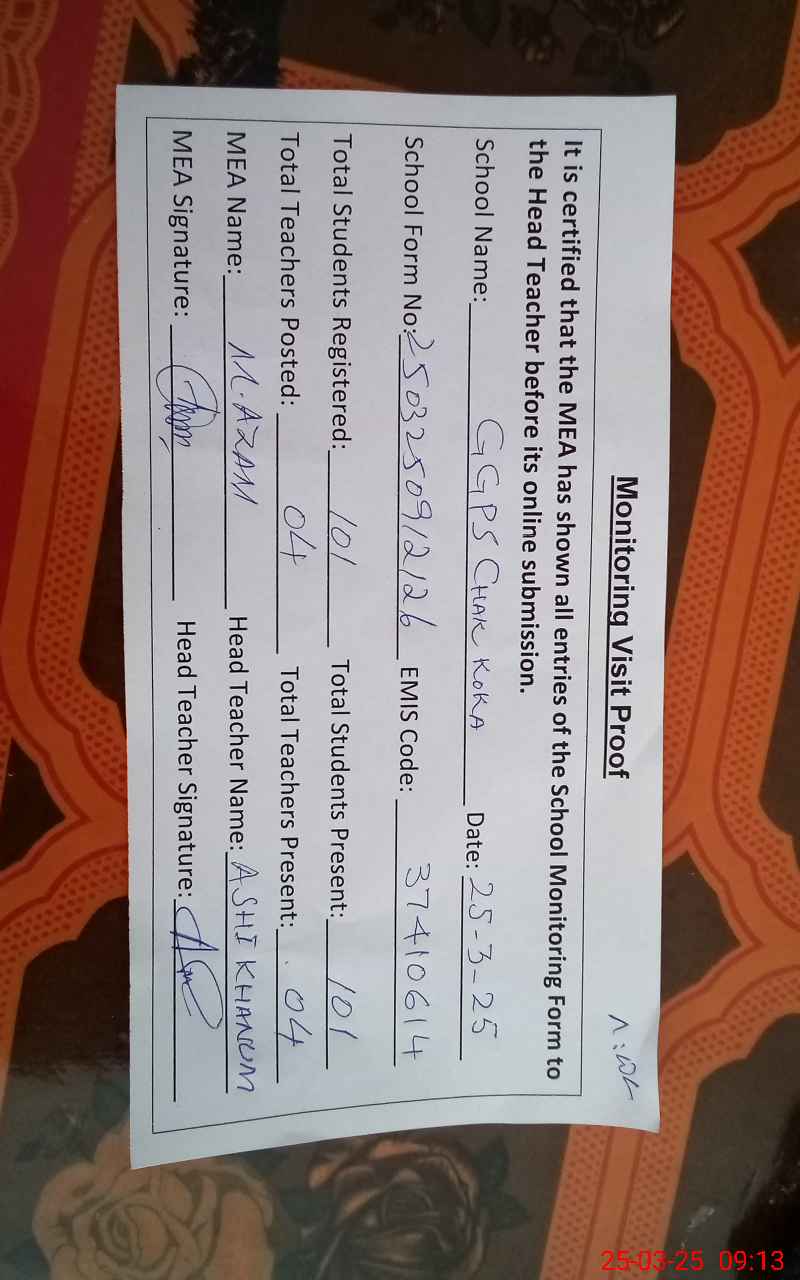 Monitoring Visit Proof
It is certified that the MEA has shown all entries of the School Monitoring Form to
the Head Teacher before its online submission.
School Name: GGPS CHAK KOKA Date: 25-3-25
School Form No: 2503250912126 EMIS Code: 37410614
Total Students Registered: 101 Total Students Present: 101
Total Teachers Posted: 04 Total Teachers Present: 04
MEA Name: M.AZAM Head Teacher Name: ASHI KHANUM
MEA Signature: Head Teacher Signature:
25-03-25 09:13